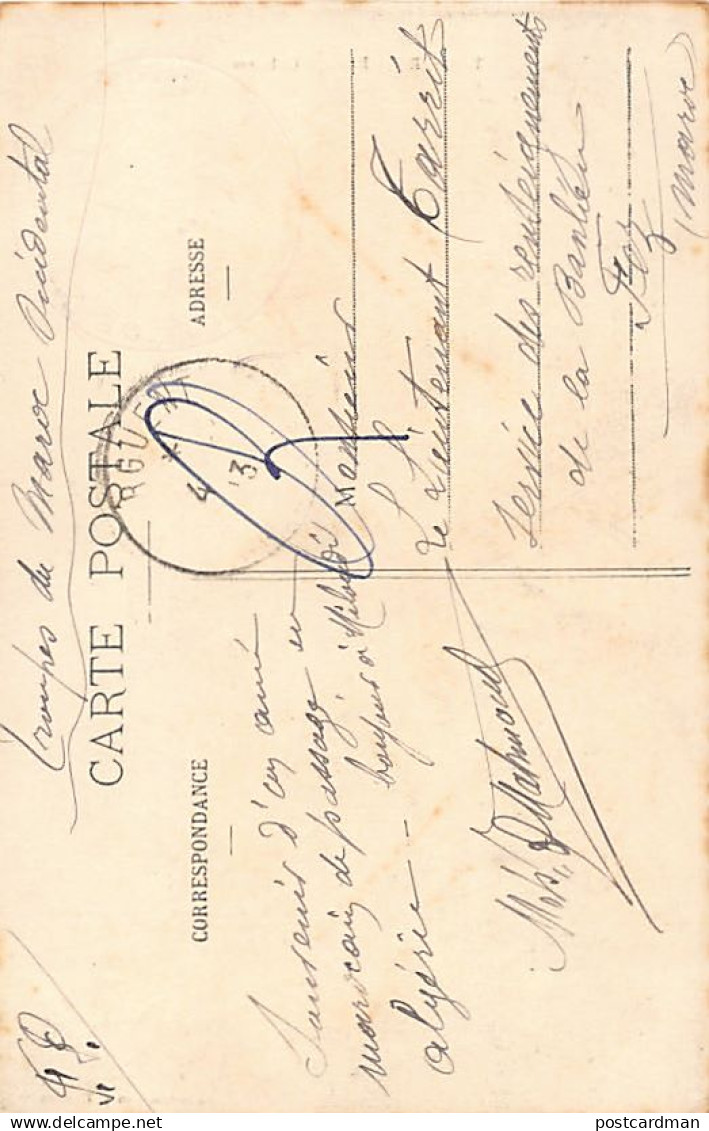 Troupes du Maroc Occidental
CARTE POSTALE
CORRESPONDANCE
ADRESSE
Souvenir d'un ami
marocain de passage en
algérie - bonjour à Miloudi
Mahmoud
Monsieur
le Lieutenant Tarrit
Service des renseignements
de la Banlieu
Fez
(Maroc)
GUE
4
3
postcardman